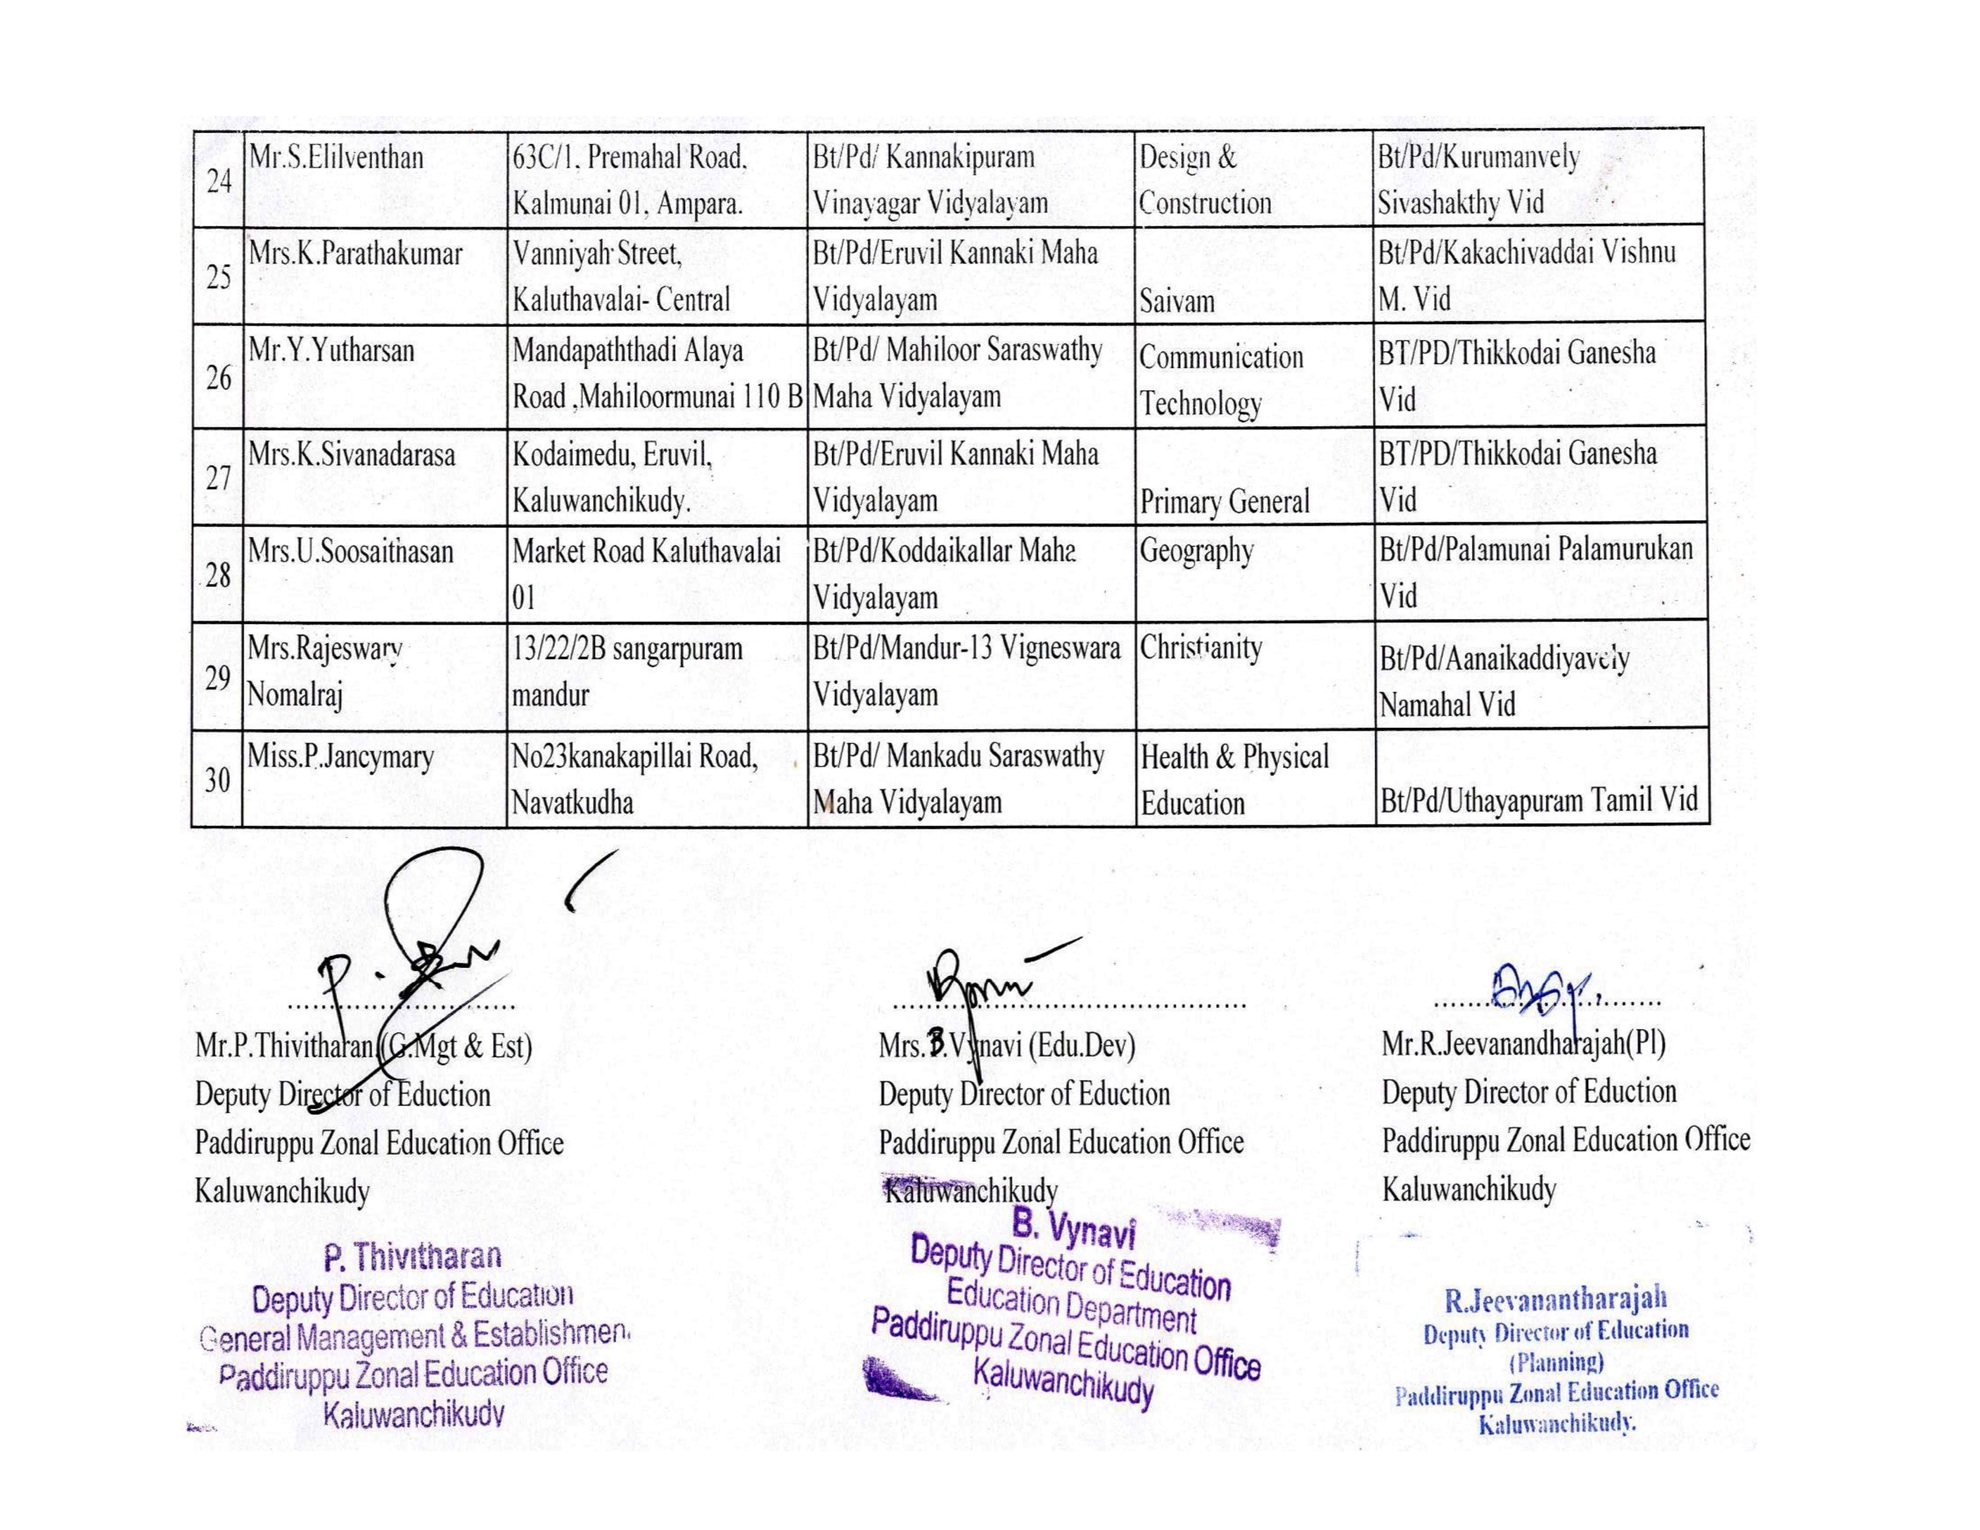 24 Mr.S.Elilventhan 63C/1, Premahal Road, Bt/Pd/ Kannakipuram Design & Bt/Pd/Kurumanvely
Kalmunai 01, Ampara. Vinayagar Vidyalayam Construction Sivashakthy Vid
25 Mrs.K.Parathakumar Vanniyah Street, Bt/Pd/Eruvil Kannaki Maha Bt/Pd/Kakachivaddai Vishnu
Kaluthavalai- Central Vidyalayam Saivam M. Vid
26 Mr.Y.Yutharsan Mandapaththadi Alaya Bt/Pd/ Mahiloor Saraswathy Communication BT/PD/Thikkodai Ganesha
Road ,Mahiloormunai 110 B Maha Vidyalayam Technology Vid
27 Mrs.K.Sivanadarasa Kodaimedu, Eruvil, Bt/Pd/Eruvil Kannaki Maha BT/PD/Thikkodai Ganesha
Kaluwanchikudy. Vidyalayam Primary General Vid
28 Mrs.U.Soosaithasan Market Road Kaluthavalai Bt/Pd/Koddaikallar Maha Geography Bt/Pd/Palamunai Palamurukan
01 Vidyalayam Vid
29 Mrs.Rajeswary 13/22/2B sangarpuram Bt/Pd/Mandur-13 Vigneswara Christianity Bt/Pd/Aanaikaddiyavely
Nomalraj mandur Vidyalayam Namahal Vid
30 Miss.P.Jancymary No23kanakapillai Road, Bt/Pd/ Mankadu Saraswathy Health & Physical
Navatkudha Maha Vidyalayam Education Bt/Pd/Uthayapuram Tamil Vid
Mr.P.Thivitharan.(G.Mgt & Est) Mrs.B.Vynavi (Edu.Dev) Mr.R.Jeevanandharajah(Pl)
Deputy Director of Eduction Deputy Director of Eduction Deputy Director of Eduction
Paddiruppu Zonal Education Office Paddiruppu Zonal Education Office Paddiruppu Zonal Education Office
Kaluwanchikudy Kaluwanchikudy Kaluwanchikudy
P. Thivitharan
Deputy Director of Education
General Management & Establishmen
Paddiruppu Zonal Education Office
Kaluwanchikudy
B. Vynavi
Deputy Director of Education
Education Department
Paddiruppu Zonal Education Office
Kaluwanchikudy
R.Jeevanantharajah
Deputy Director of Education
(Planning)
Paddiruppu Zonal Education Office
Kaluwanchikudy.